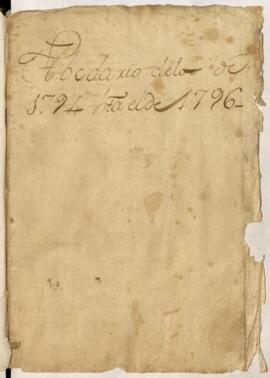 Abcdario delos de
1794 hta el de 1796